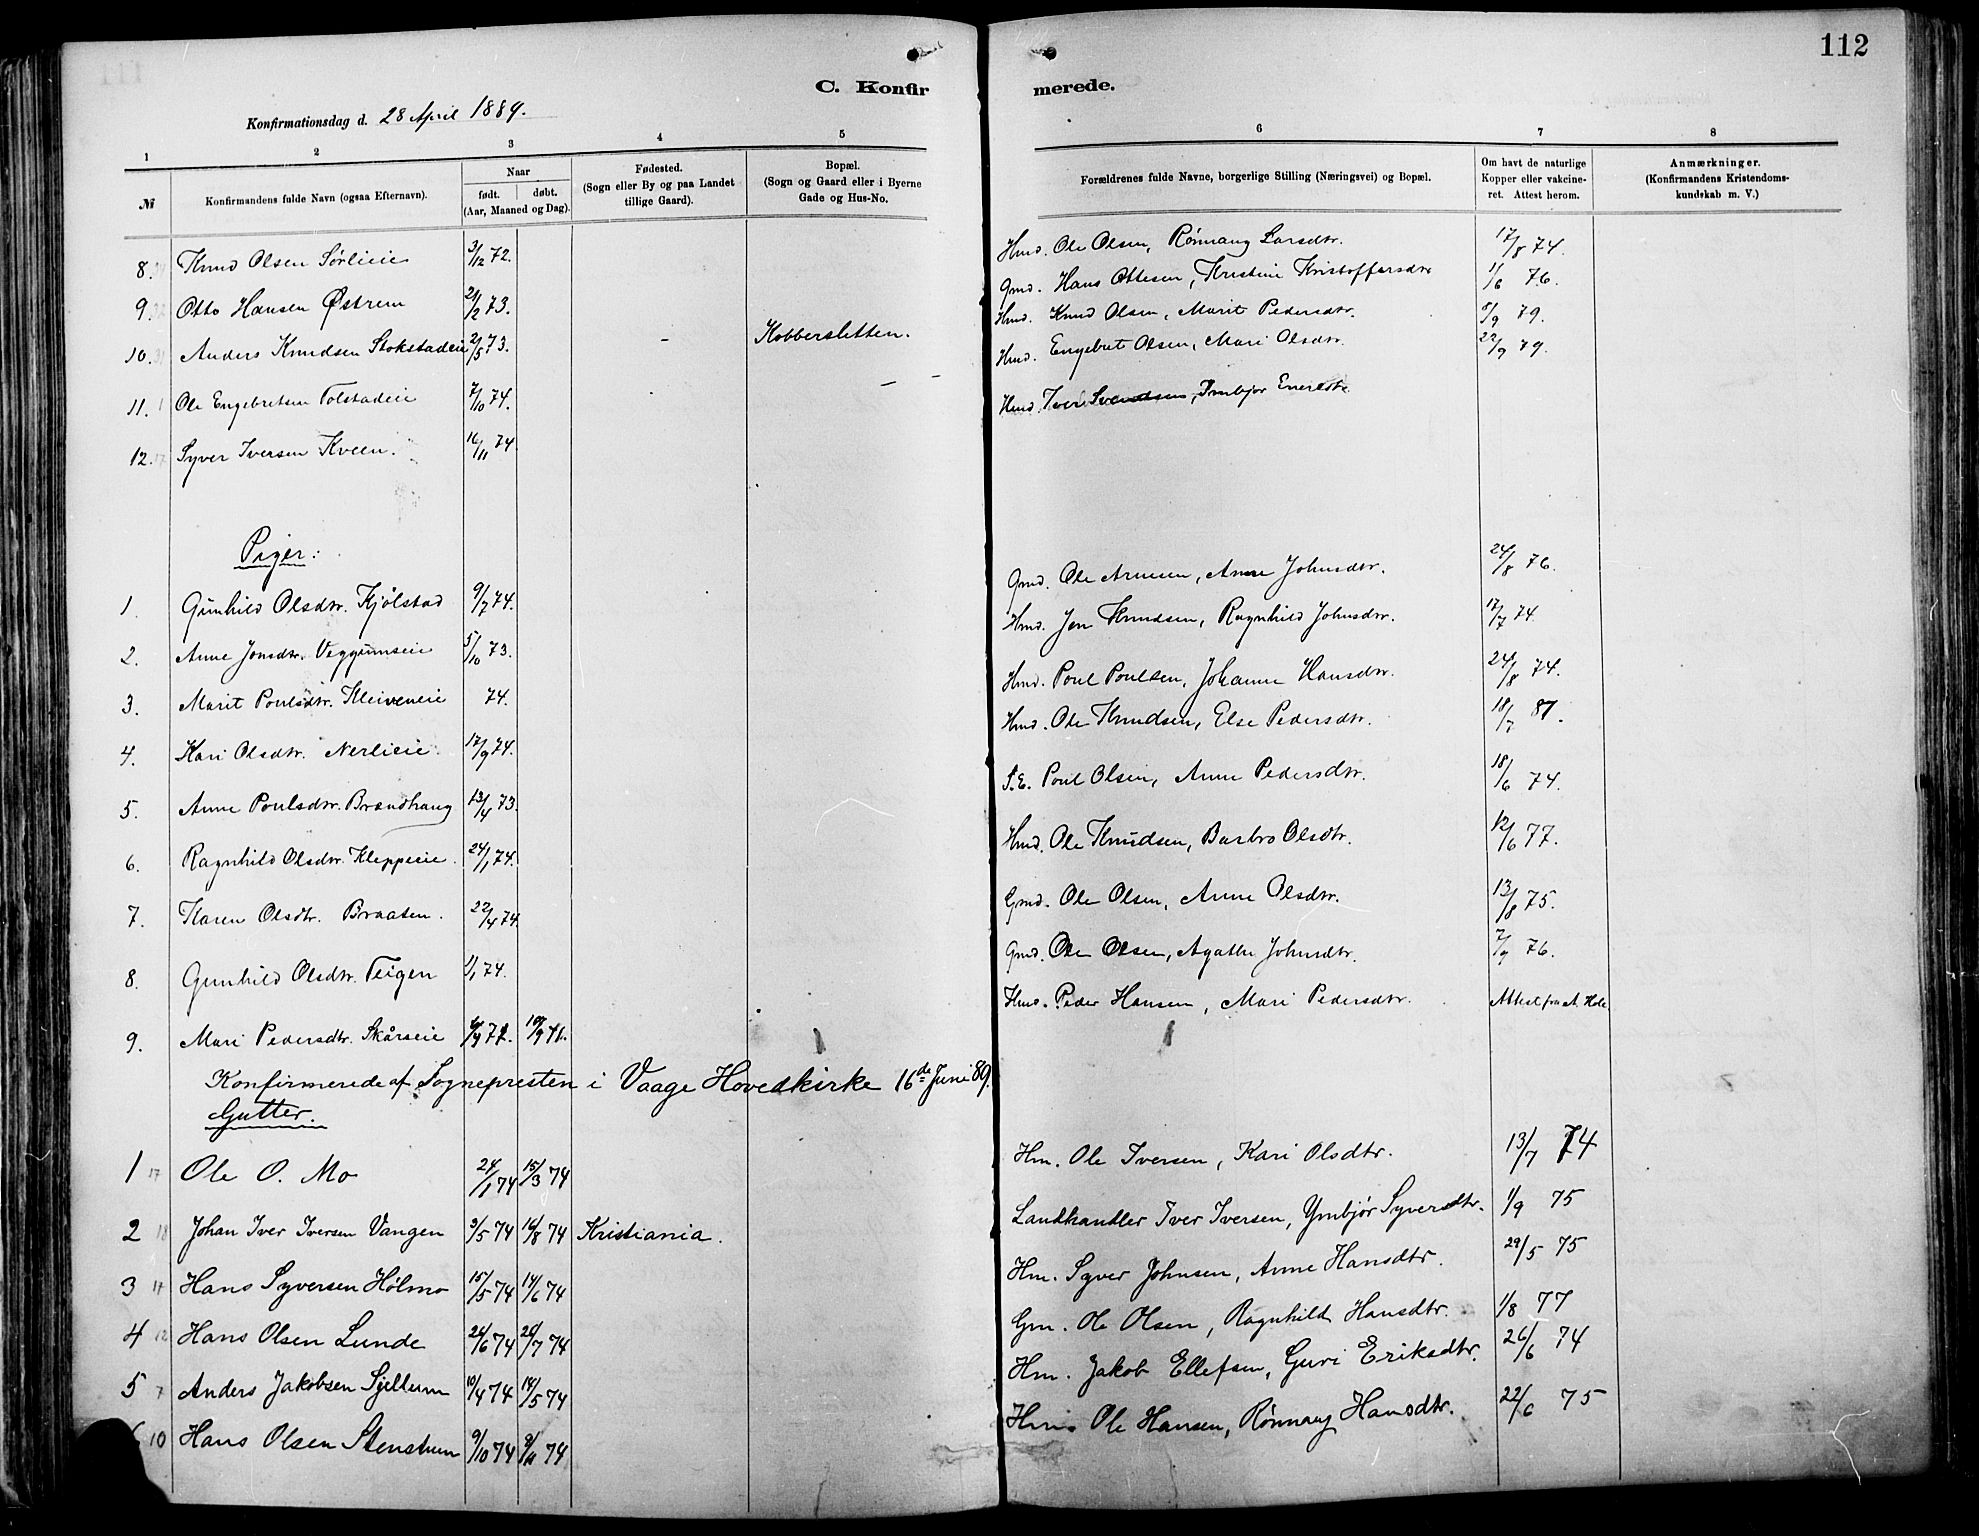 112
C. Konfirmerede.
Konfirmationsdag d. 28 April 1889.
1 2 3 4 5 6 7 8
№
Konfirmandens fulde Navn (ogsaa Efternavn).
Naar
født. døbt.
(Aar, Maaned og Dag).
Fødested.
(Sogn eller By og paa Landet
tillige Gaard).
Bopæl.
(Sogn og Gaard eller i Byerne
Gade og Hus-No.
Forældrenes fulde Navne, borgerlige Stilling (Næringsvei) og Bopæl.
Om havt de naturlige
Kopper eller vakcine-
ret. Attest herom.
Anmærkninger.
(Konfirmandens Kristendoms-
kundskab m. V.)
8. Knud Olsen Sørlieie 3/12 72. Hmd. Ole Olsen, Rønnaug Larsdtr. 17/8 74.
9. Otto Hansen Østrem 21/2 73. Gmd. Hans Ottesen, Kristine Kristoffersdtr 1/6 76.
10. Anders Knudsen Stokstadeie 2/5 73. - Kobbersletten. Hmd. Knud Olsen, Marit Pedersdtr. 8/9 79.
11. Ole Engebretsen Tolstadeie 7/10 74. — — Hmd. Engebret Olsen, Mari Olsdtr. 22/9 79.
12. Syver Iversen Kveen. 16/11 74. Hmd. Iver Svendsen, Imbjør
Piger:
1. Gunhild Olsdtr. Kjølstad 9/7 74. Gmd. Ole Arnesen, Anne Johnsdtr. 24/8 76.
2. Anne Jonsdtr. Veggumseie 5/10 73. Hmd. Jon Knudsen, Ragnhild Johnsdtr. 17/7 74.
3. Marit Poulsdtr. Kleiveneie 74. Hmd. Poul Poulsen, Johanne Hansdtr. 24/8 74.
4. Kari Olsdtr. Nerlieie. 17/9 74. Hmd. Ole Knudsen, Else Pedersdtr. 18/7 81.
5. Anne Poulsdtr. Brandhaug 13/4 73. S.E. Poul Olsen, Anne Pedersdtr. 18/6 74.
6. Ragnhild Olsdtr. Kleppeie. 24/1 74. Hmd. Ole Knudsen, Barbro Olsdtr. 12/6 77.
7. Karen Olsdtr. Braaten. 22/4 74. Gmd. Ole Olsen, Anne Olsdtr. 13/8 75.
8. Gunhild Olsdtr. Teigen 1/1 74. Gmd. Ole Olsen, Agathe Johnsdtr. 7/9 76.
9. Mari Pedersdtr. Skårseie Hmd. Peder Hansen, Mari Pedersdtr. Attest fra A. Hole
Konfirmerede af Sognepresten i Vaage Hovedkirke 16de Juni 89.
Gutter.
1 17 Ole O. Mo 24/1 74 15/3 74 Hm. Ole Iversen, Kari Olsdtr. 13/7 74
2 18 Johan Iver Iversen Vangen 3/5 74 16/8 74 Kristiania. Landhandler Iver Iversen, Ymbjør Syversdtr. 1/9 75
3 Hans Syversen Hølmo 15/5 74 14/6 74 Hm. Syver Johnsen, Anne Hansdtr. 29/5 75
4 12 Hans Olsen Lunde 24/6 74 26/7 74 Gm. Ole Olsen, Ragnhild Hansdtr. 1/8 77
5 7 Anders Jakobsen Sjellum 10/4 74 14/5 74 Hm. Jakob Ellefsen, Guri Eriksdtr. 26/6 74
6 10 Hans Olsen Stenstuen 9/10 74 Hm. Ole Hansen, Rønnaug Hansdtr. 22/6 75